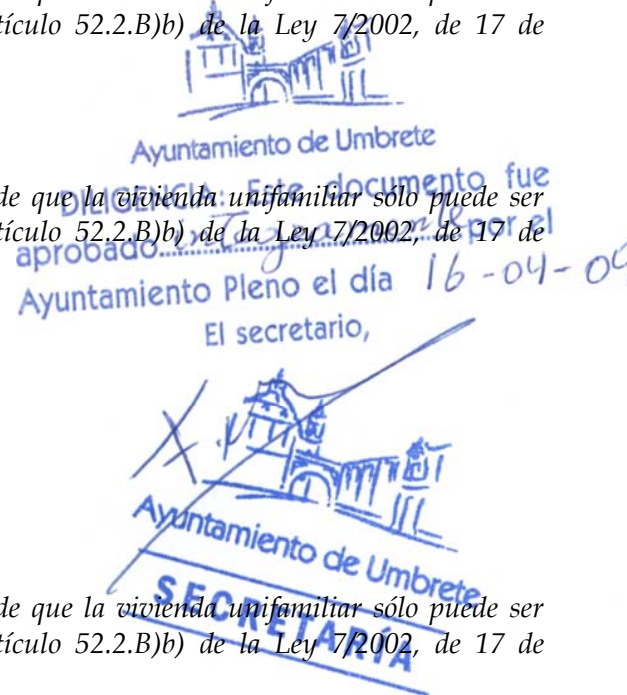 tículo 52.2.B)b) de la Ley 7/2002, de 17 de
Ayuntamiento de Umbrete
de que la vivienda unifamiliar sólo puede ser
DILIGENCIA: Este documento fue
tículo 52.2.B)b) de la Ley 7/2002, de 17 de
aprobado por el
Ayuntamiento Pleno el día 16-04-09
El secretario,
Ayuntamiento de Umbrete
SECRETARÍA
de que la vivienda unifamiliar sólo puede ser
tículo 52.2.B)b) de la Ley 7/2002, de 17 de